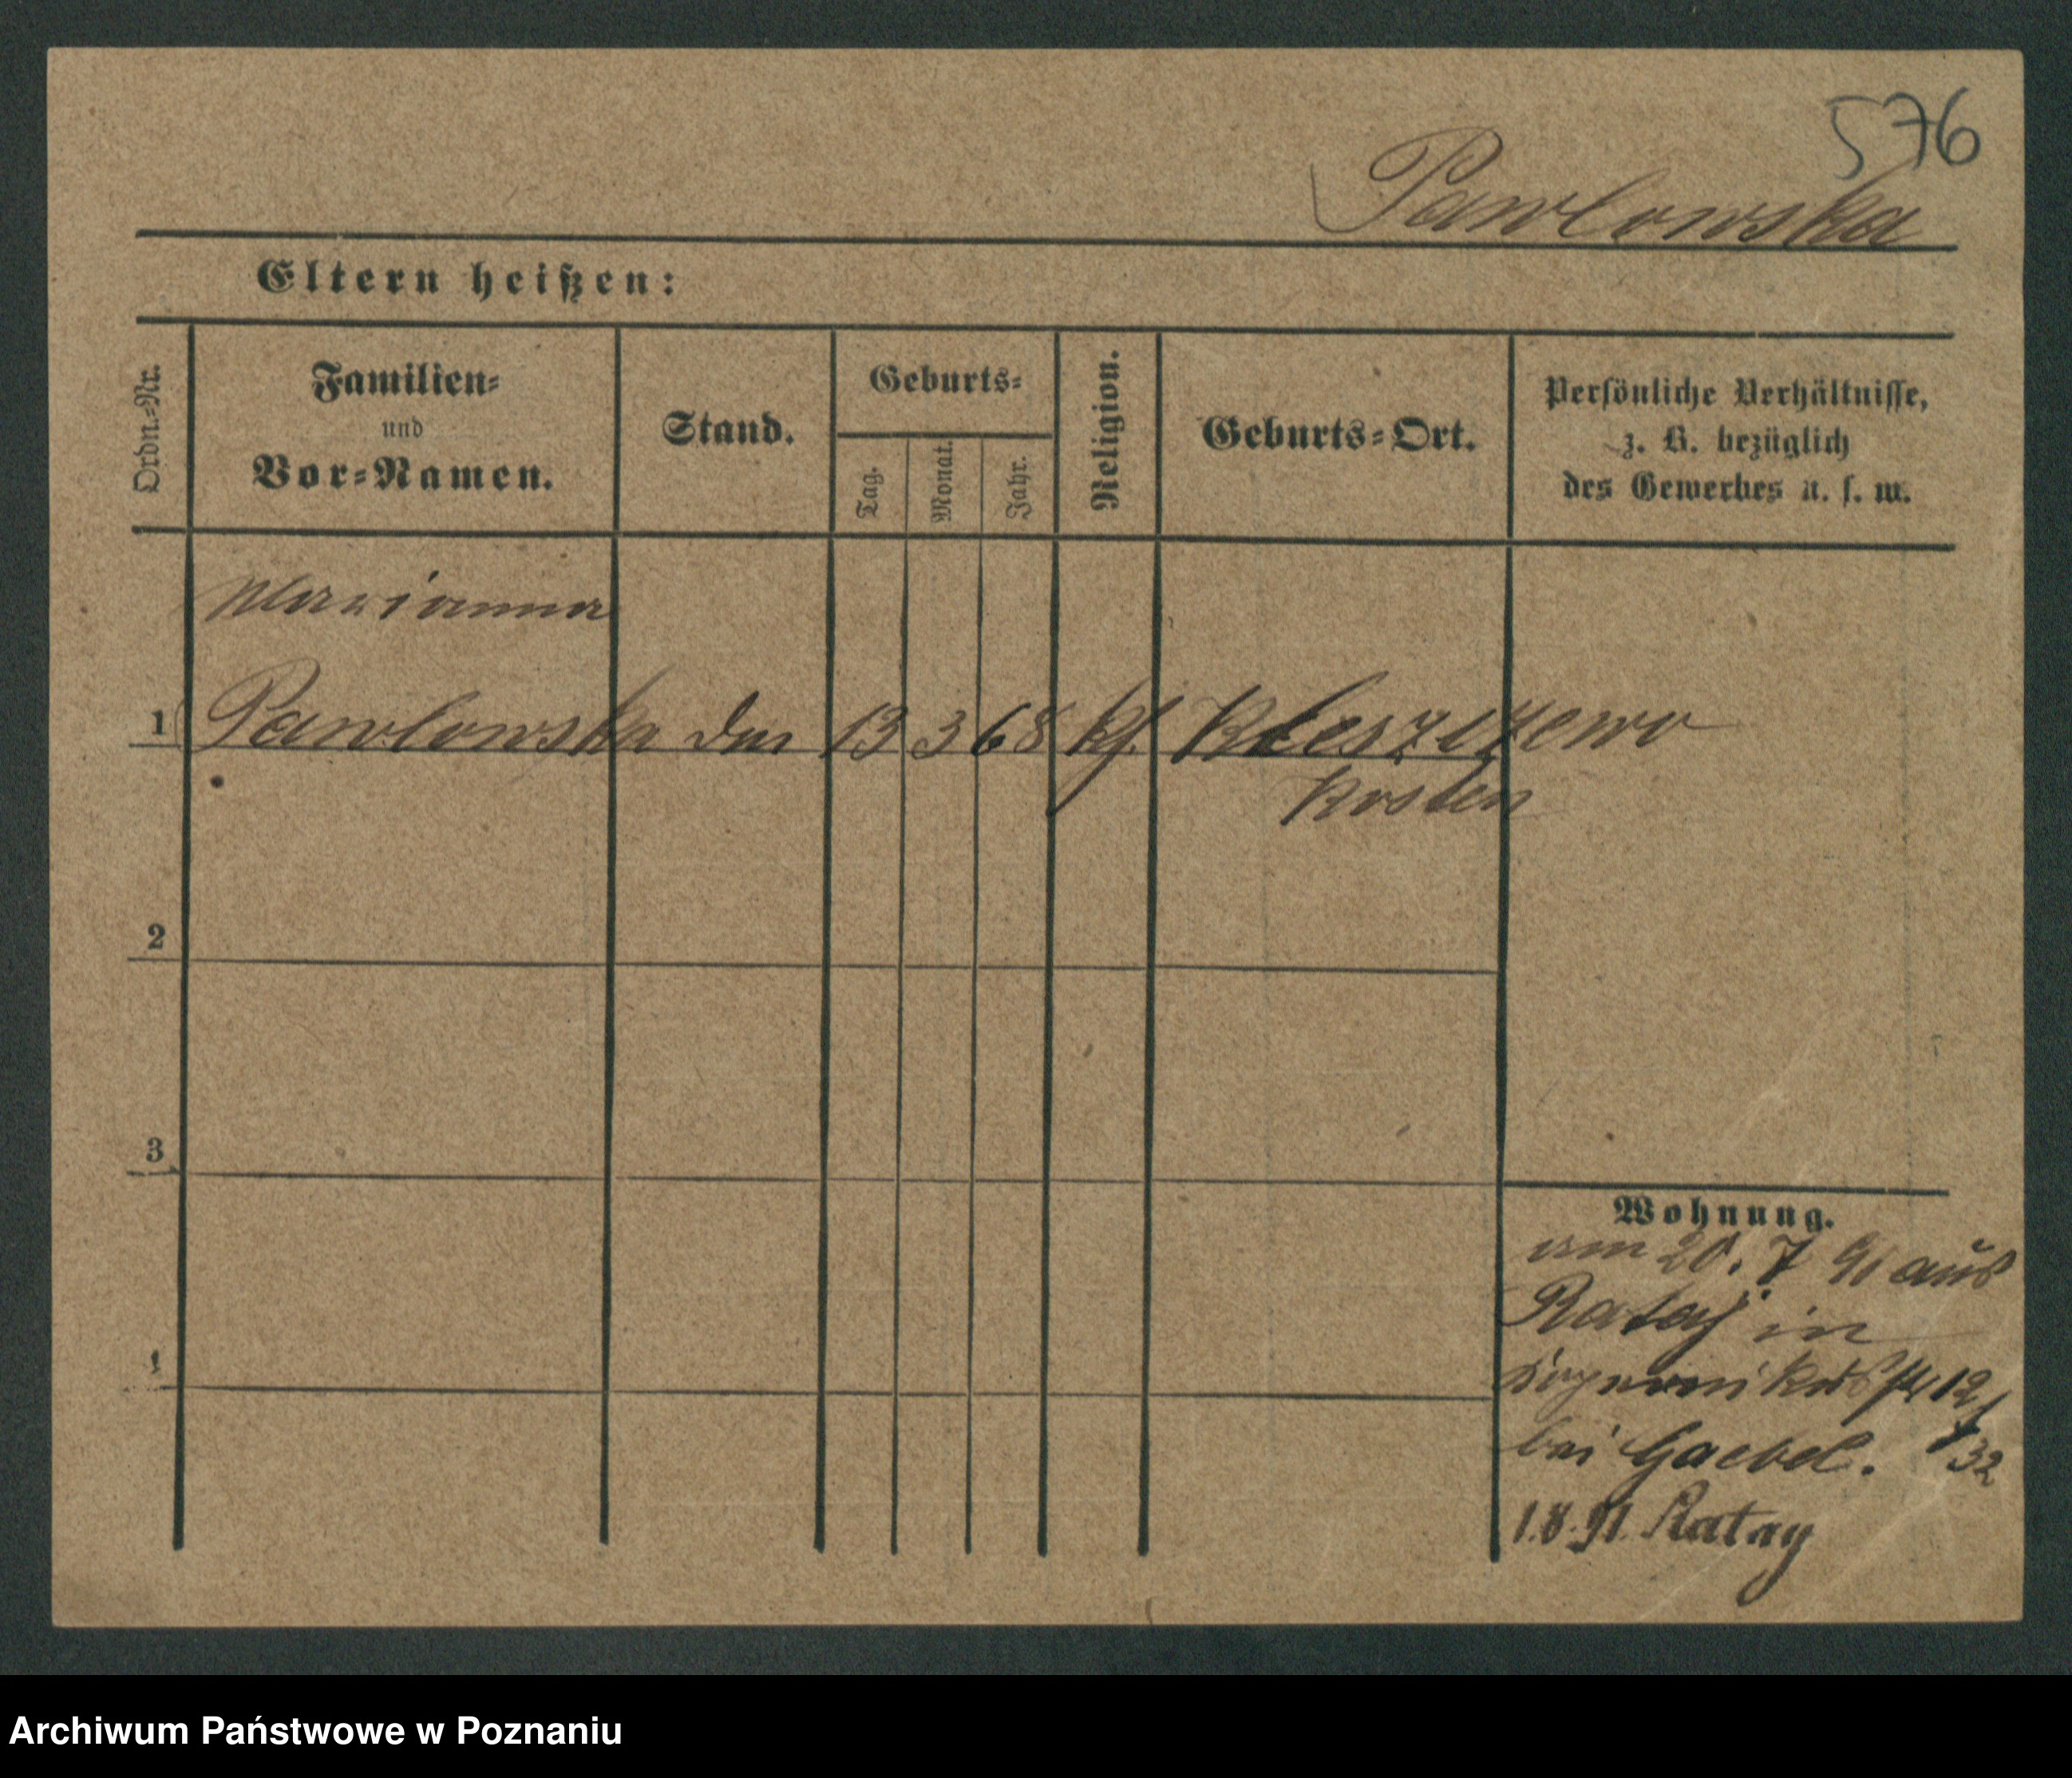 576
Pawlowska
Eltern heißen:
Ordn.-Nr.
Familien-
und
Vor-Namen.
Stand.
Geburts-
Tag.
Monat.
Jahr.
Religion.
Geburts-Ort.
Persönliche Verhältnisse,
z. B. bezüglich
des Gewerbes u. s. w.
Marianna
1 Pawlowska 13 3 68 kf.
Kosten
2
3
Wohnung.
am 20. 7 91 aus
Rataj in
12/
bei Gaebel. 32
1.8.91. Ratay
Archiwum Państwowe w Poznaniu